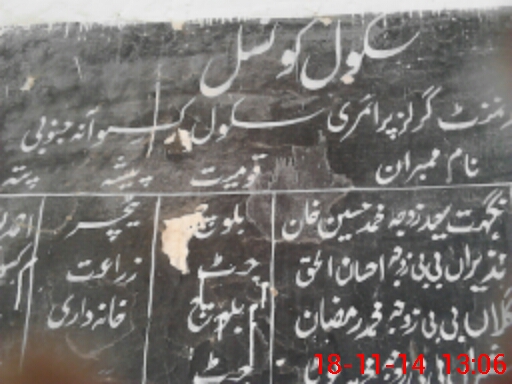 سکول کونسل
گرلز پرائمری سکول آنہ جنوبی
نام ممبران قومیت پیشہ پتہ
نگہت زوجہ محمد حسین خان بلوچ ٹیچر
نذیراں بی بی زوجہ احسان الحق جٹ زراعت
گلاں بی بی زوجہ محمد رمضان بلوچ خانہ داری
زوجہ جٹ
18-11-14 13:06